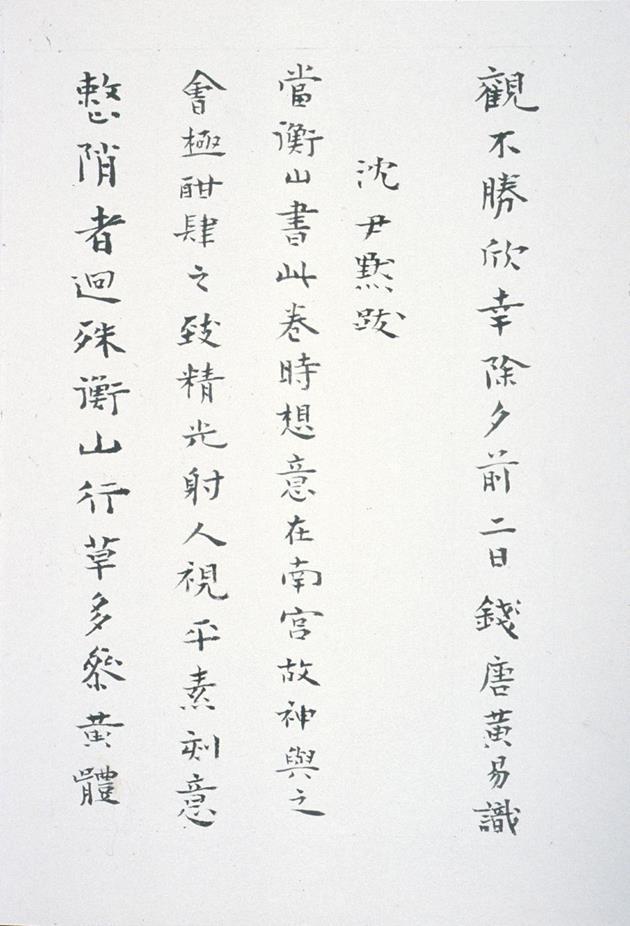 觀不勝欣幸除夕前二日錢唐黃易識
沈尹默跋
當衡山書此卷時想意在南宫故神與之
會極酣肆之致精光射人視平素刻意
整陗者迥殊衡山行草多叅黃體